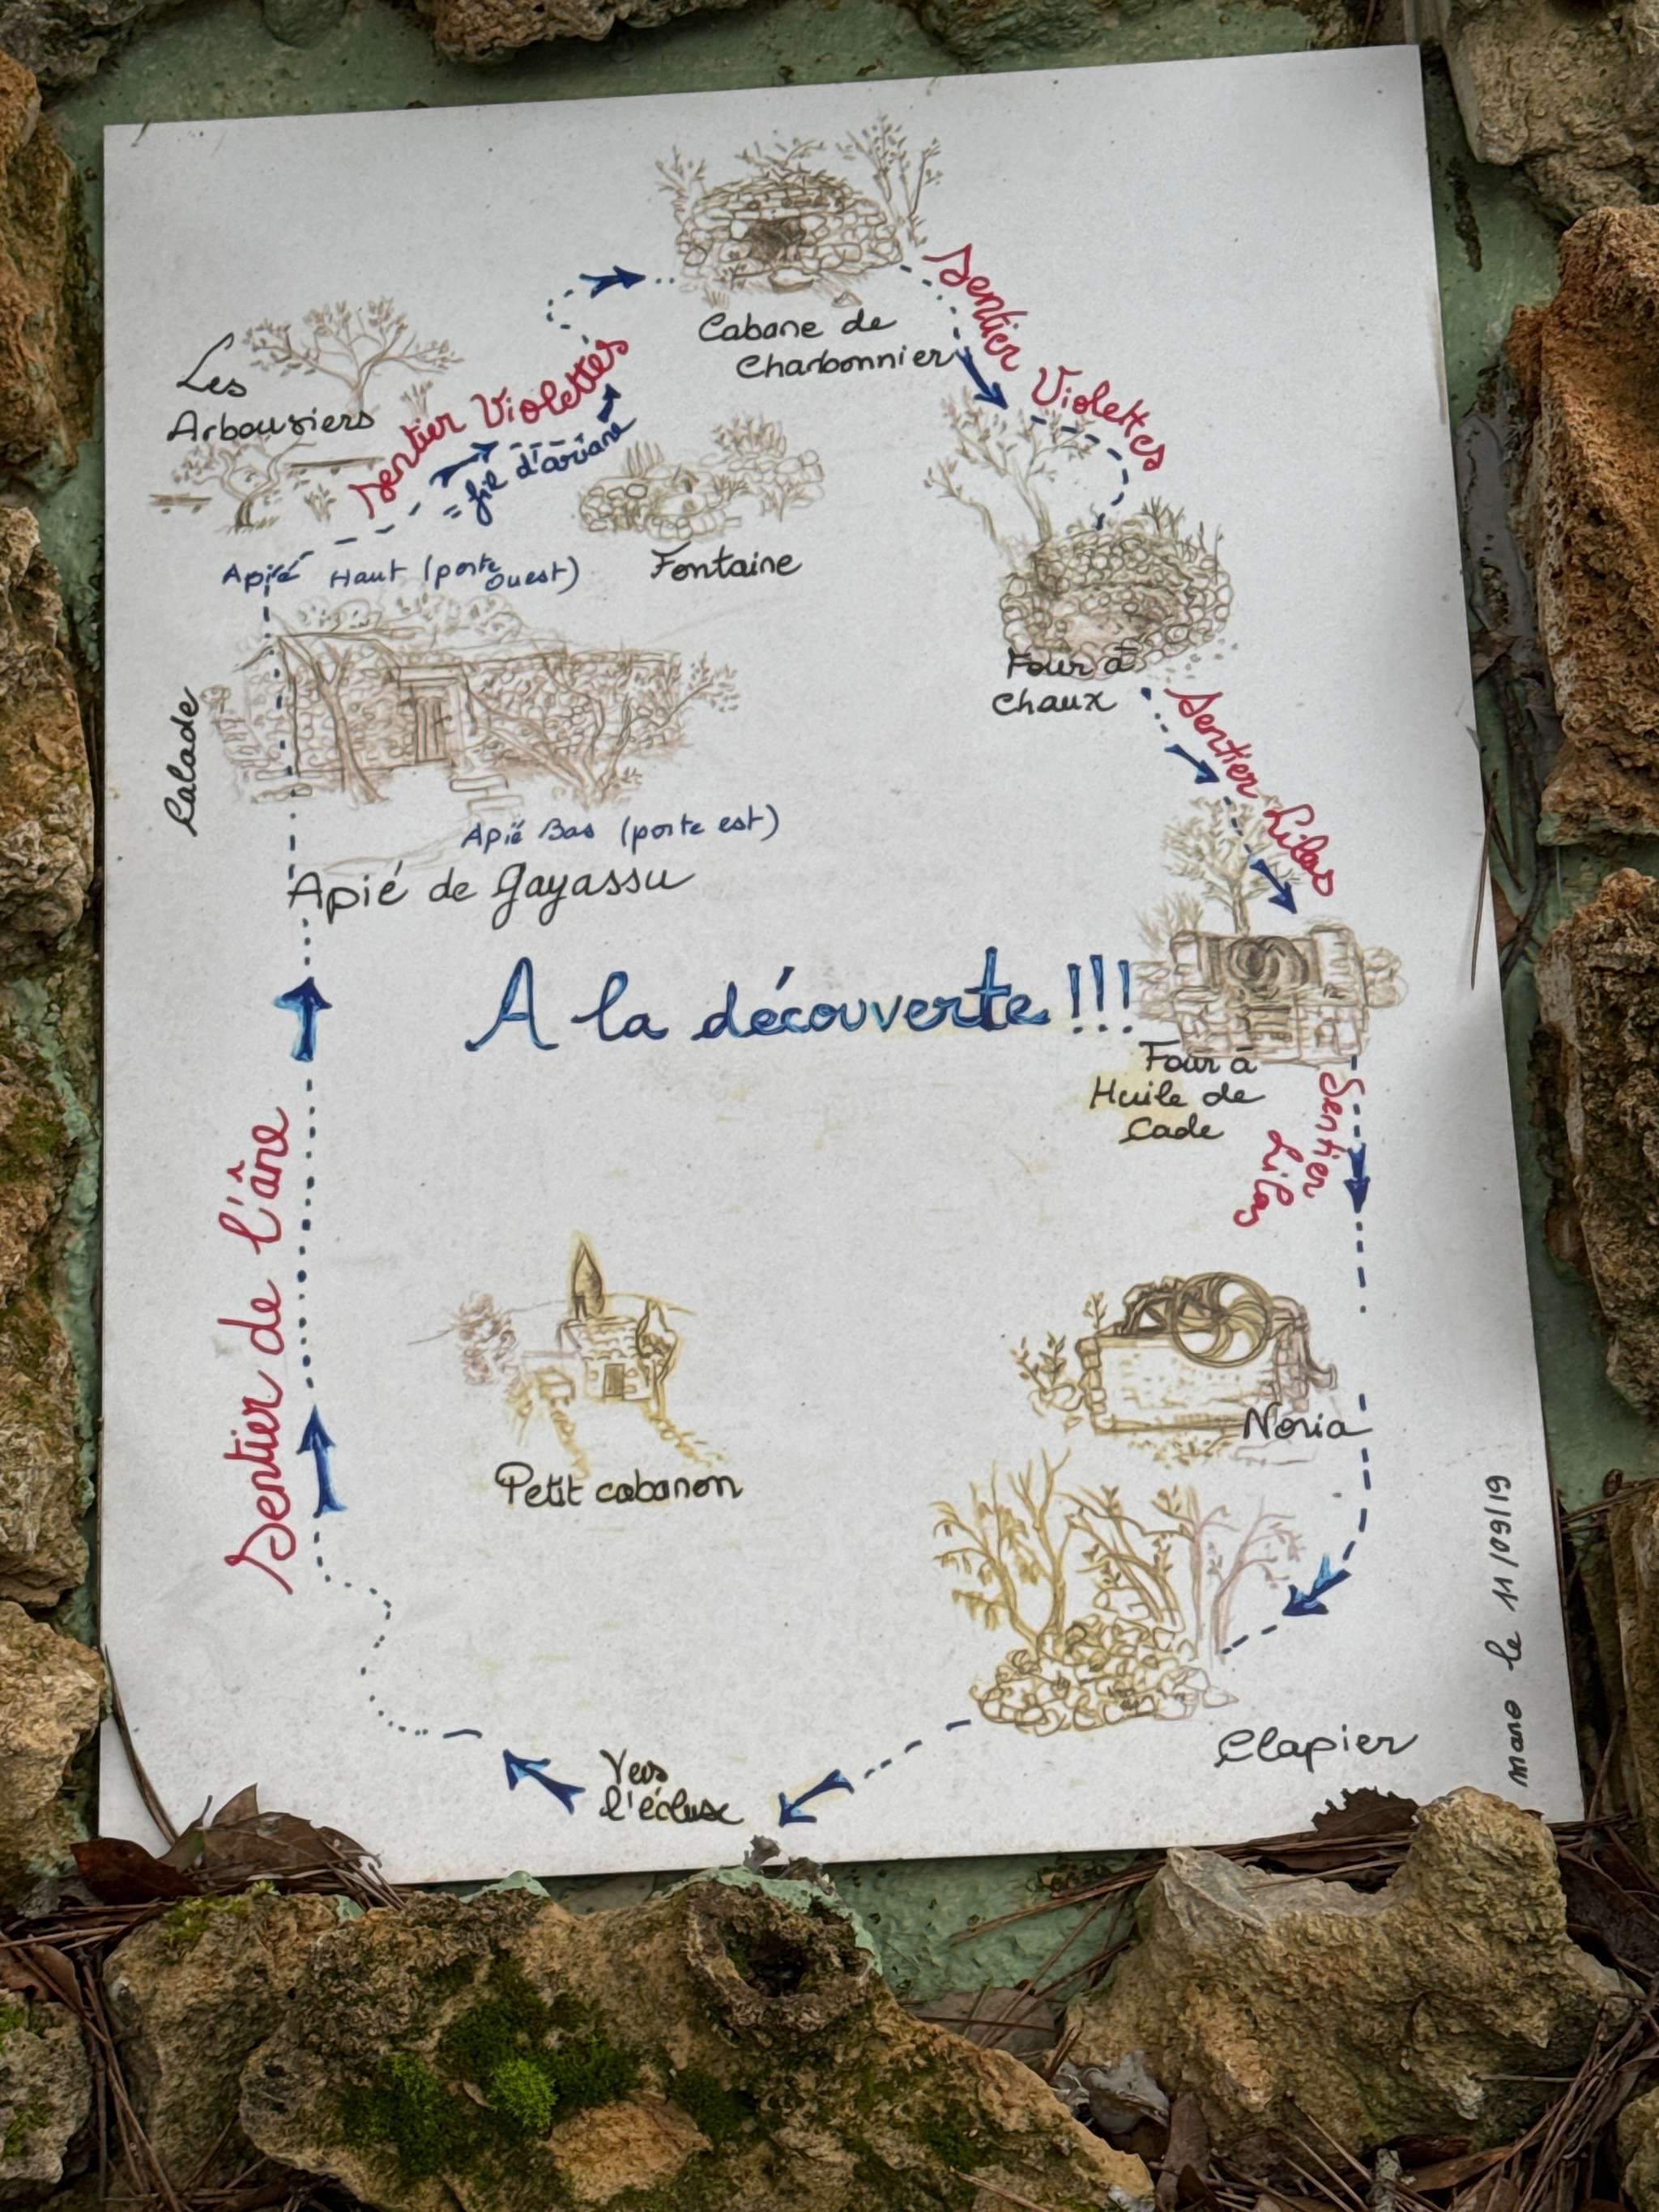 Cabane de
Charbonnier
Sentier Violettes
Les
Arbousiers
Sentier Violettes
= fil d'ariane
Fontaine
Apié Haut (porte
Ouest)
Four à
Chaux
Calade
Sentier Lilas
Apié Bas (porte est)
Apié de Gayassu
A la découverte !!!
Four à
Huile de
Cade
Sentier
Lilas
Sentier de l'âne
Noria
Petit cabanon
Clapier
Vers
l'écluse
mano le 11/09/19